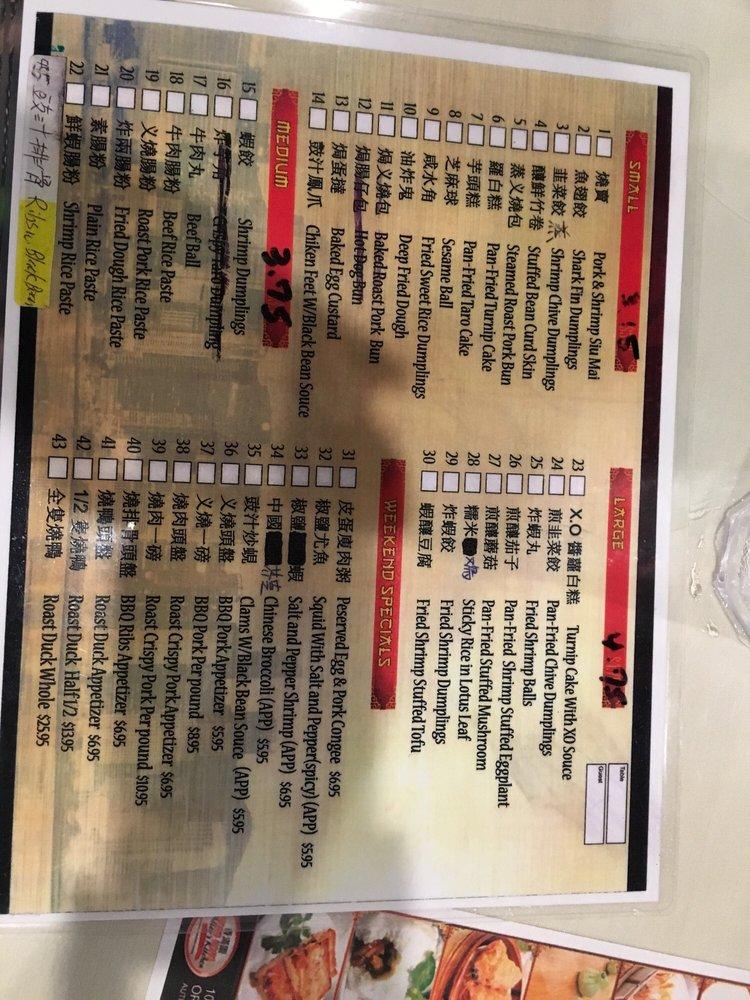 SMALL
1 燒賣 Pork & Shrimp Siu Mai
2 魚翅餃 Shark Fin Dumplings
3 韭菜餃 蒸 Shrimp Chive Dumplings
4 釀鮮竹卷 Stuffed Bean Curd Skin
5 蒸义燒包 Steamed Roast Pork Bun
6 羅白糕 Pan-Fried Turnip Cake
7 芋頭糕 Pan-Fried Taro Cake
8 芝麻球 Sesame Ball
9 咸水角 Fried Sweet Rice Dumplings
10 油炸鬼 Deep Fried Dough
11 焗义燒包 Baked Roast Pork Bun
12 焗腸仔包 Hot Dog Bun
13 焗蛋撻 Baked Egg Custard
14 豉汁鳳爪 Chiken Feet W/Black Bean Souce
MEDIUM 3.75
15 蝦餃 Shrimp Dumplings
16 Crispy Taro Dumpling
17 牛肉丸 Beef Ball
18 牛肉腸粉 Beef Rice Paste
19 义燒腸粉 Roast Pork Rice Paste
20 炸兩腸粉 Fried Dough Rice Paste
21 素腸粉 Plain Rice Paste
22 鮮蝦腸粉 Shrimp Rice Paste
豉汁排骨 Ribs w Black Bean
LARGE 4.75
Table
Guest
23 X.O 醬蘿白糕 Turnip Cake With XO Souce
24 煎韭菜餃 Pan-Fried Chive Dumplings
25 炸蝦丸 Fried Shrimp Balls
26 煎釀茄子 Pan-Fried Shrimp Stuffed Eggplant
27 煎釀蘑菇 Pan-Fried Stuffed Mushroom
28 糯米 鸡 Sticky Rice in Lotus Leaf
29 炸蝦餃 Fried Shrimp Dumplings
30 蝦釀豆腐 Fried Shrimp Stuffed Tofu
WEEKEND SPECIALS
31 皮蛋瘦肉粥 Peserved Egg & Pork Congee $6.95
32 椒鹽尤魚 Squid With Salt and Pepper(spicy) (APP) $5.95
33 椒鹽 蝦 Salt and Pepper Shrimp (APP) $6.95
34 中國 芥兰 Chinese Broccoli (APP) $5.95
35 豉汁炒蜆 Clams W/Black Bean Souce (APP) $5.95
36 义燒頭盤 BBQ Pork Appetizer $5.95
37 义燒一磅 BBQ Pork Per pound $8.95
38 燒肉頭盤 Roast Crispy Pork Appetizer $6.95
39 燒肉一磅 Roast Crispy Pork Per pound $10.95
40 燒排骨頭盤 BBQ Ribs Appetizer $6.95
41 燒鴨頭盤 Roast Duck Appetizer $6.95
42 1/2 隻燒鴨 Roast Duck Half 1/2 $13.95
43 全隻燒鴨 Roast Duck Whole $25.95